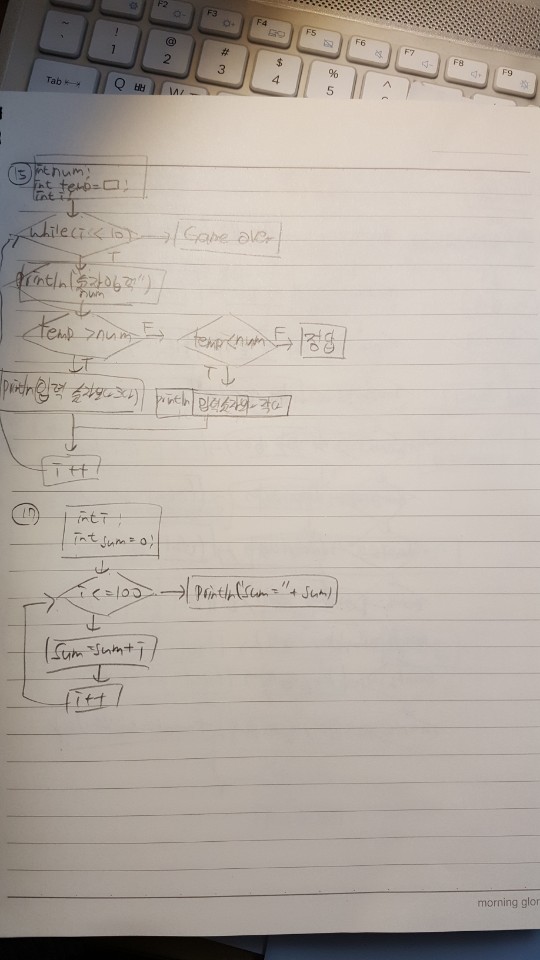 F2
F3
F4
F5
F6
F7
F8
F9
~
`
!
1
@
2
#
3
$
4
%
5
^
Tab
Q ㅃ
W
⑮
int num;
int temp = □;
int i;
while(i<10)
Game over
T
println("숫자입력")
num
temp > num
F
temp < num
F
정답
T
T
println(입력 숫자보다 크다)
println
입력숫자보다 작다
i++
⑰
int i;
int sum = 0;
i <= 100
println("sum = " + sum)
sum = sum + i
i++
morning glor